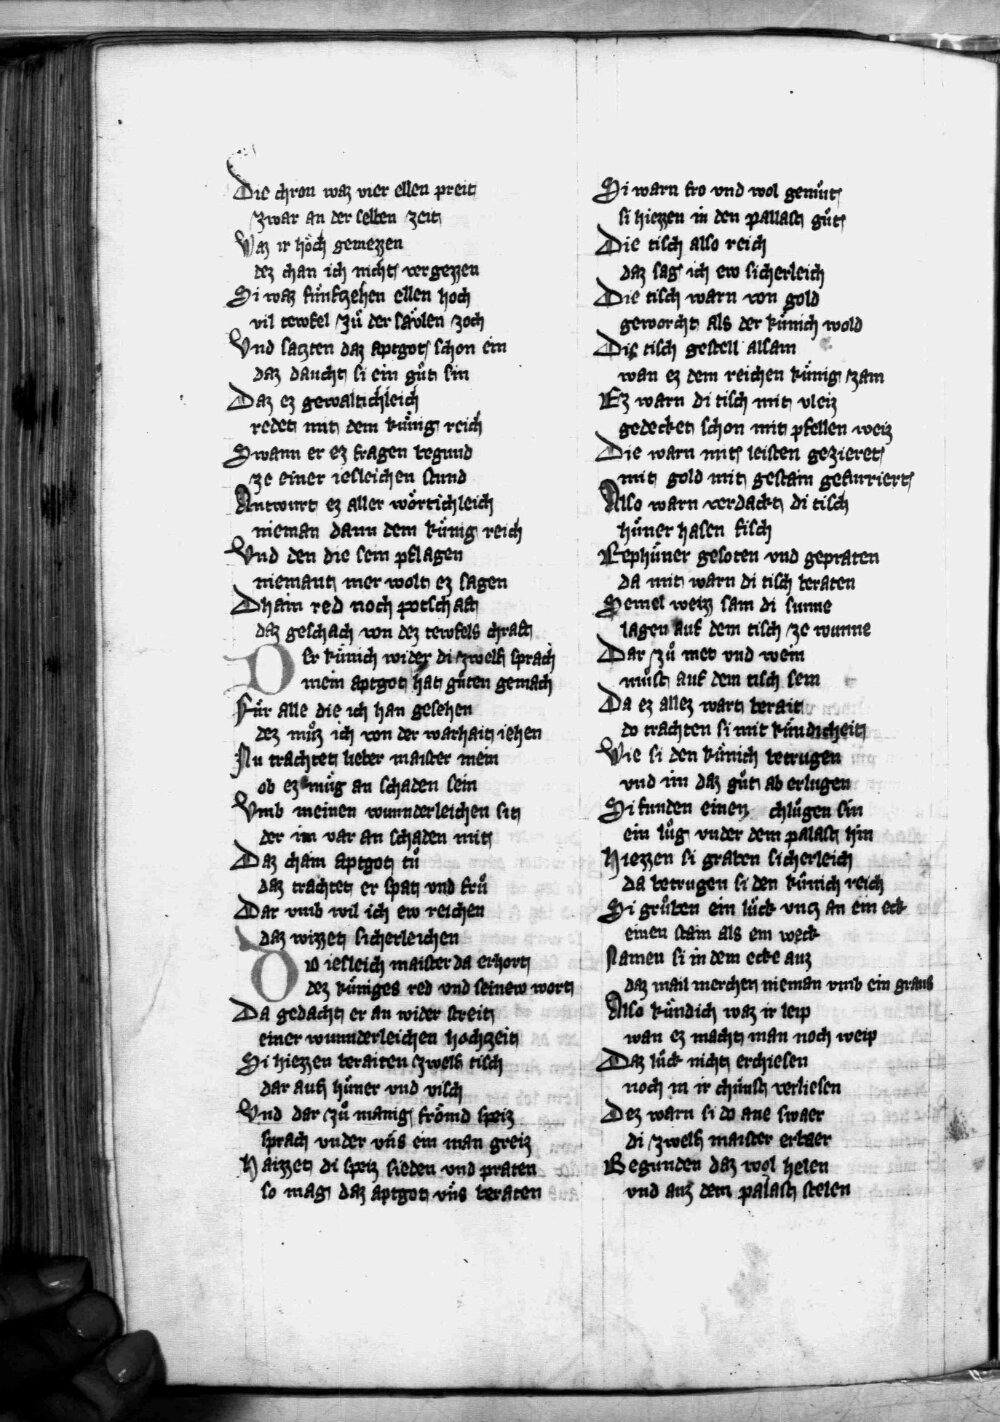 Die chron waz vier ellen preit
zwar an der selben zeit
Waz ir höch gemezzen
dez chan ich nicht vergezzen
Si waz fünfzehen ellen hoch
vil tewfel zů der säwlen zoch
Vnd saczten daz aptgot schon ein
daz daucht si ein gůt sin
Daz ez gewaltichleich
redet mit dem künig reich
Swann er ez fragen begund
ze einer iesleichen stund
Antwurt ez aller wörtichleich
nieman dann dem künig reich
Vnd den die sein pflagen
niemant mer wolt ez sagen
Dhain red noch potschaft
daz geschach von dez tewfels chraft
Der künich wider di zwelf sprach
mein aptgot hat gůten gemach
Für alle die ich han gesehen
dez můz ich von der warhait iehen
Nu trachtet lieber maister mein
ob ez müg an schaden sein
Vmb meinen wunderleichen sit
der im var an schaden mit
Daz chain aptgot tů
daz trachtet er spat vnd frů
Dar vmb wil ich ew reichen
daz wizzet sicherleichen
Do iesleich maister da erhort
dez küniges red vnd seinew wort
Da gedacht er an wider streit
einer wunderleichen hochzeit
Si hiezzen beraiten zwelf tisch
dar auf hüner vnd visch
Vnd dar zů manig frömd speiz
sprach vnder vns ein man greiz
Haizzet di speiz sieden vnd praten
so mag daz aptgot vns beraten
Si warn fro vnd wol gemůt
si hiezzen in den pallast gůt
Die tisch also reich
daz sag ich ew sicherleich
Die tisch warn von gold
geworcht als der künich wold
Die tisch gestell allsam
wan ez dem reichen künig zam
Ez warn di tisch mit vleiz
gedecket schon mit pfellen weiz
Die warn mit leisten gezieret
mit gold mit gestain gefurriert
Also warn verdackt di tisch
hüner hasen fisch
Rephüner gesoten vnd gepraten
da mit warn di tisch beraten
Semel weizz sam di sunne
lagen auf dem tisch ze wunne
Dar zů met vnd wein
můst auf dem tisch sein
Da ez allez wart berait
do trachten si mit kündicheit
Wie si den künich betrugen
vnd im daz gůt ab erlugen
Si funden einen chlůgen sin
ein lůg vnder dem palast hin
Hiezzen si graben sicherleich
da betrugen si den künich reich
Si grůben ein lück vncz an ein eck
einen stain als ein weck
Namen si in dem ecke auz
daz mail merchet nieman vmb ein graus
Also kündich waz ir leip
wan ez macht man noch weip
Daz lück nicht erchiesen
noch in ir chünst verliesen
Dez warn si do ane swaer
di zwelf maister erbaer
Begunden daz wol helen
vnd auz dem palast stelen